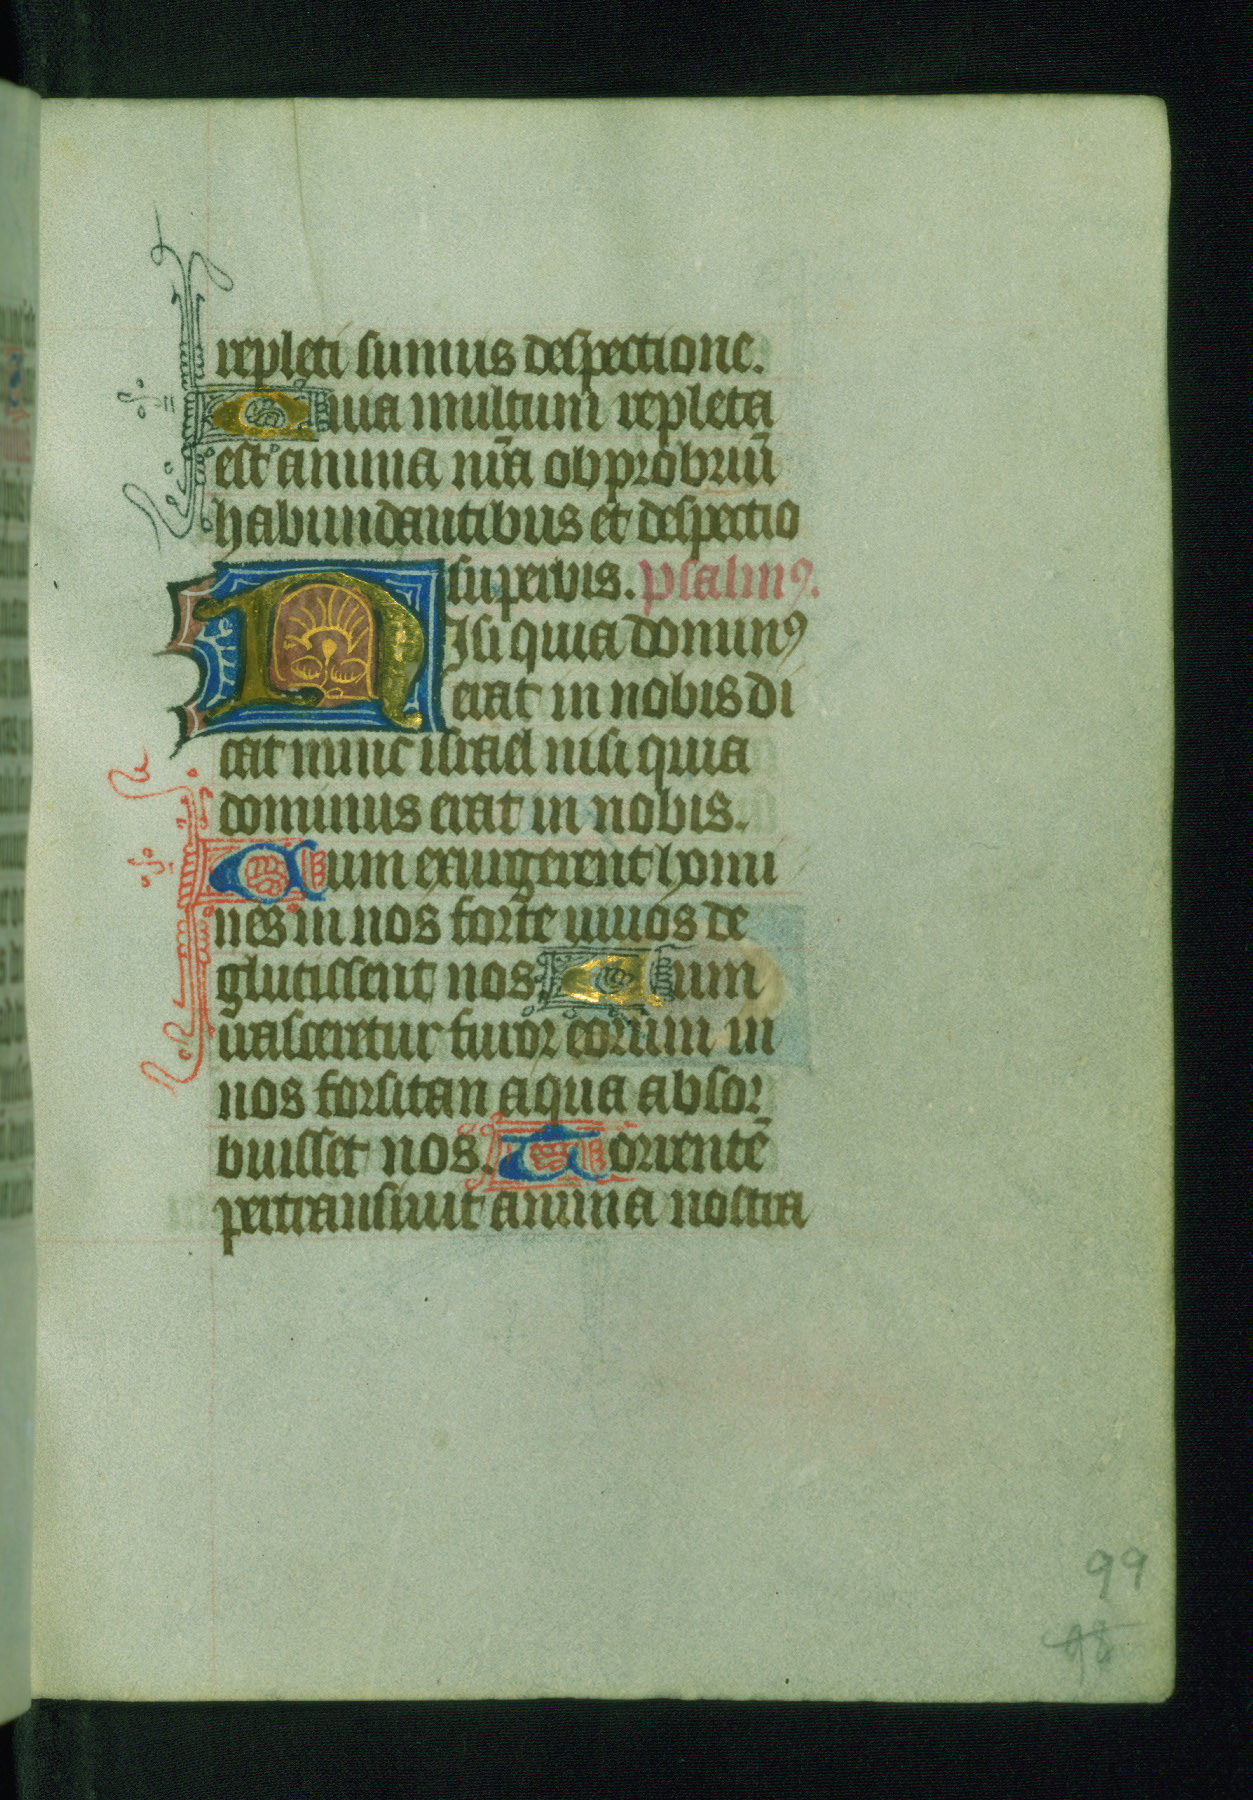 repleti sumus despectione.
Quia multum repleta
est anima nr̄a obprobriū
habundantibus et despectio
superbis. psalmꝰ.
Nisi quia dominꝰ
erat in nobis di
cat nunc israel nisi quia
dominus erat in nobis.
Cum exurgerent homi
nes in nos forte uiuos de
glutissent nos. Cum
irasceretur furor eorum in
nos forsitan aqua absor
buisset nos. Torrentē
pertransiuit anima nostra
99
98